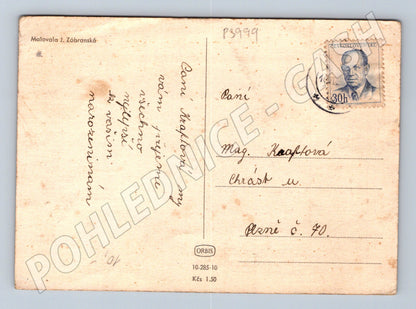 Malovala J. Zábranská
P3999
ČESKOSLOVENSKO
30h
Paní
my
vám přejeme
všechno
nejlepší
k vašim
narozeninám
Paní
Mag. Knaftová
Chrást u
Plzně č. 70.
ORBIS
10-285-10
Kčs 1.50
POHLEDNICE - CASH